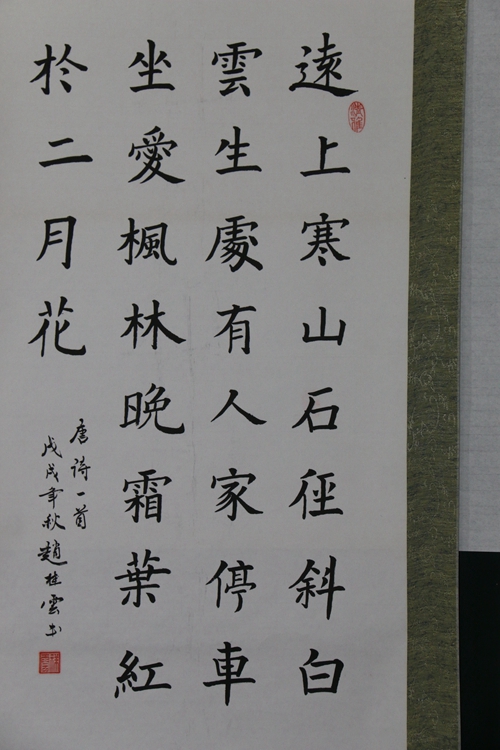 遠上寒山石徑斜白
雲生處有人家停車
坐愛楓林晚霜葉紅
於二月花
唐詩一首
戊戌年秋趙桂雲书